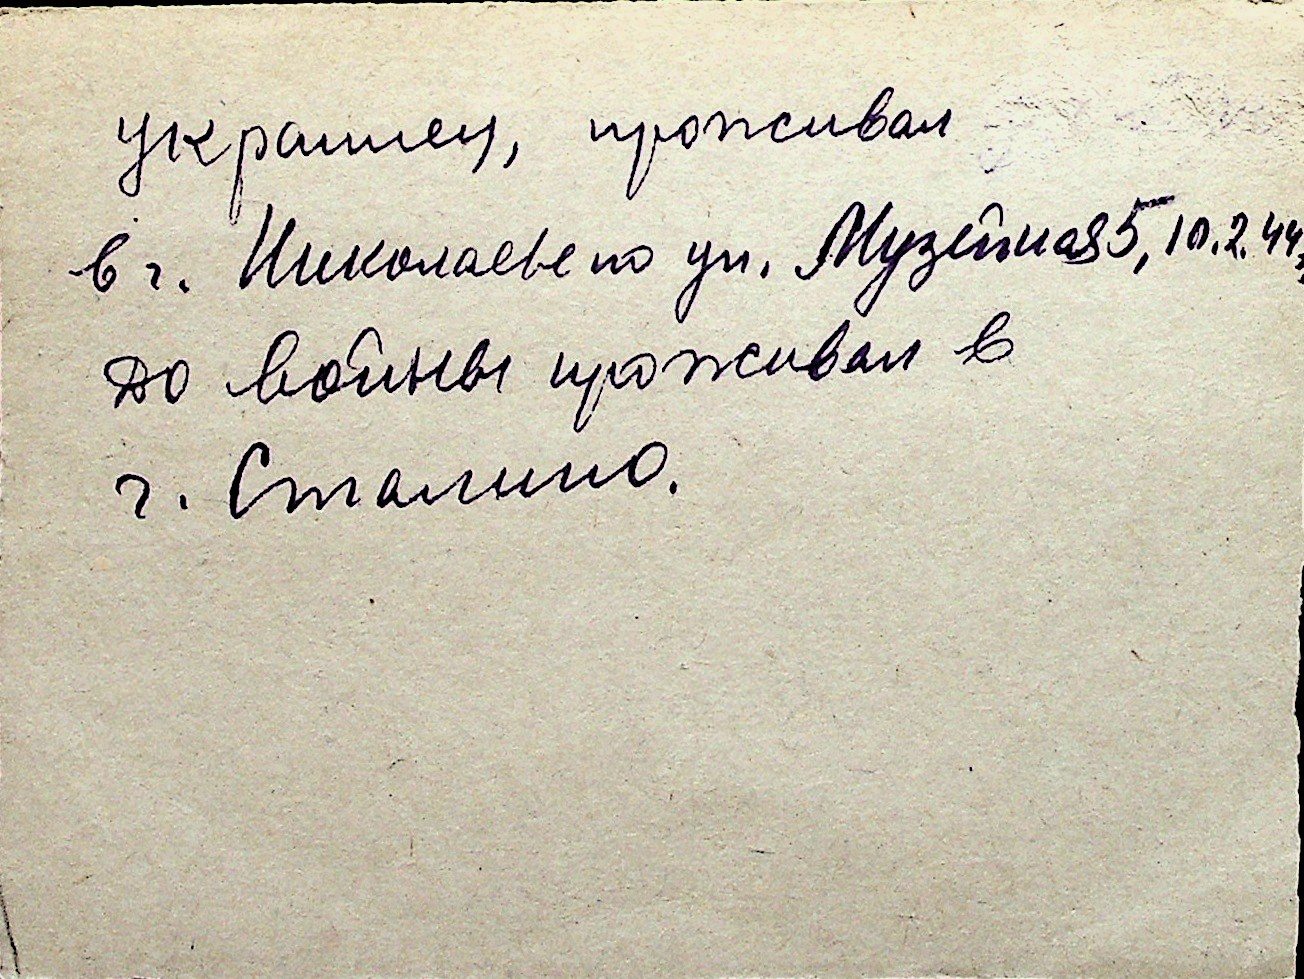 украинец, проживал
в г. Николаеве по ул. Музейная 5, 10.2.44,
до войны проживал в
г. Сталино.